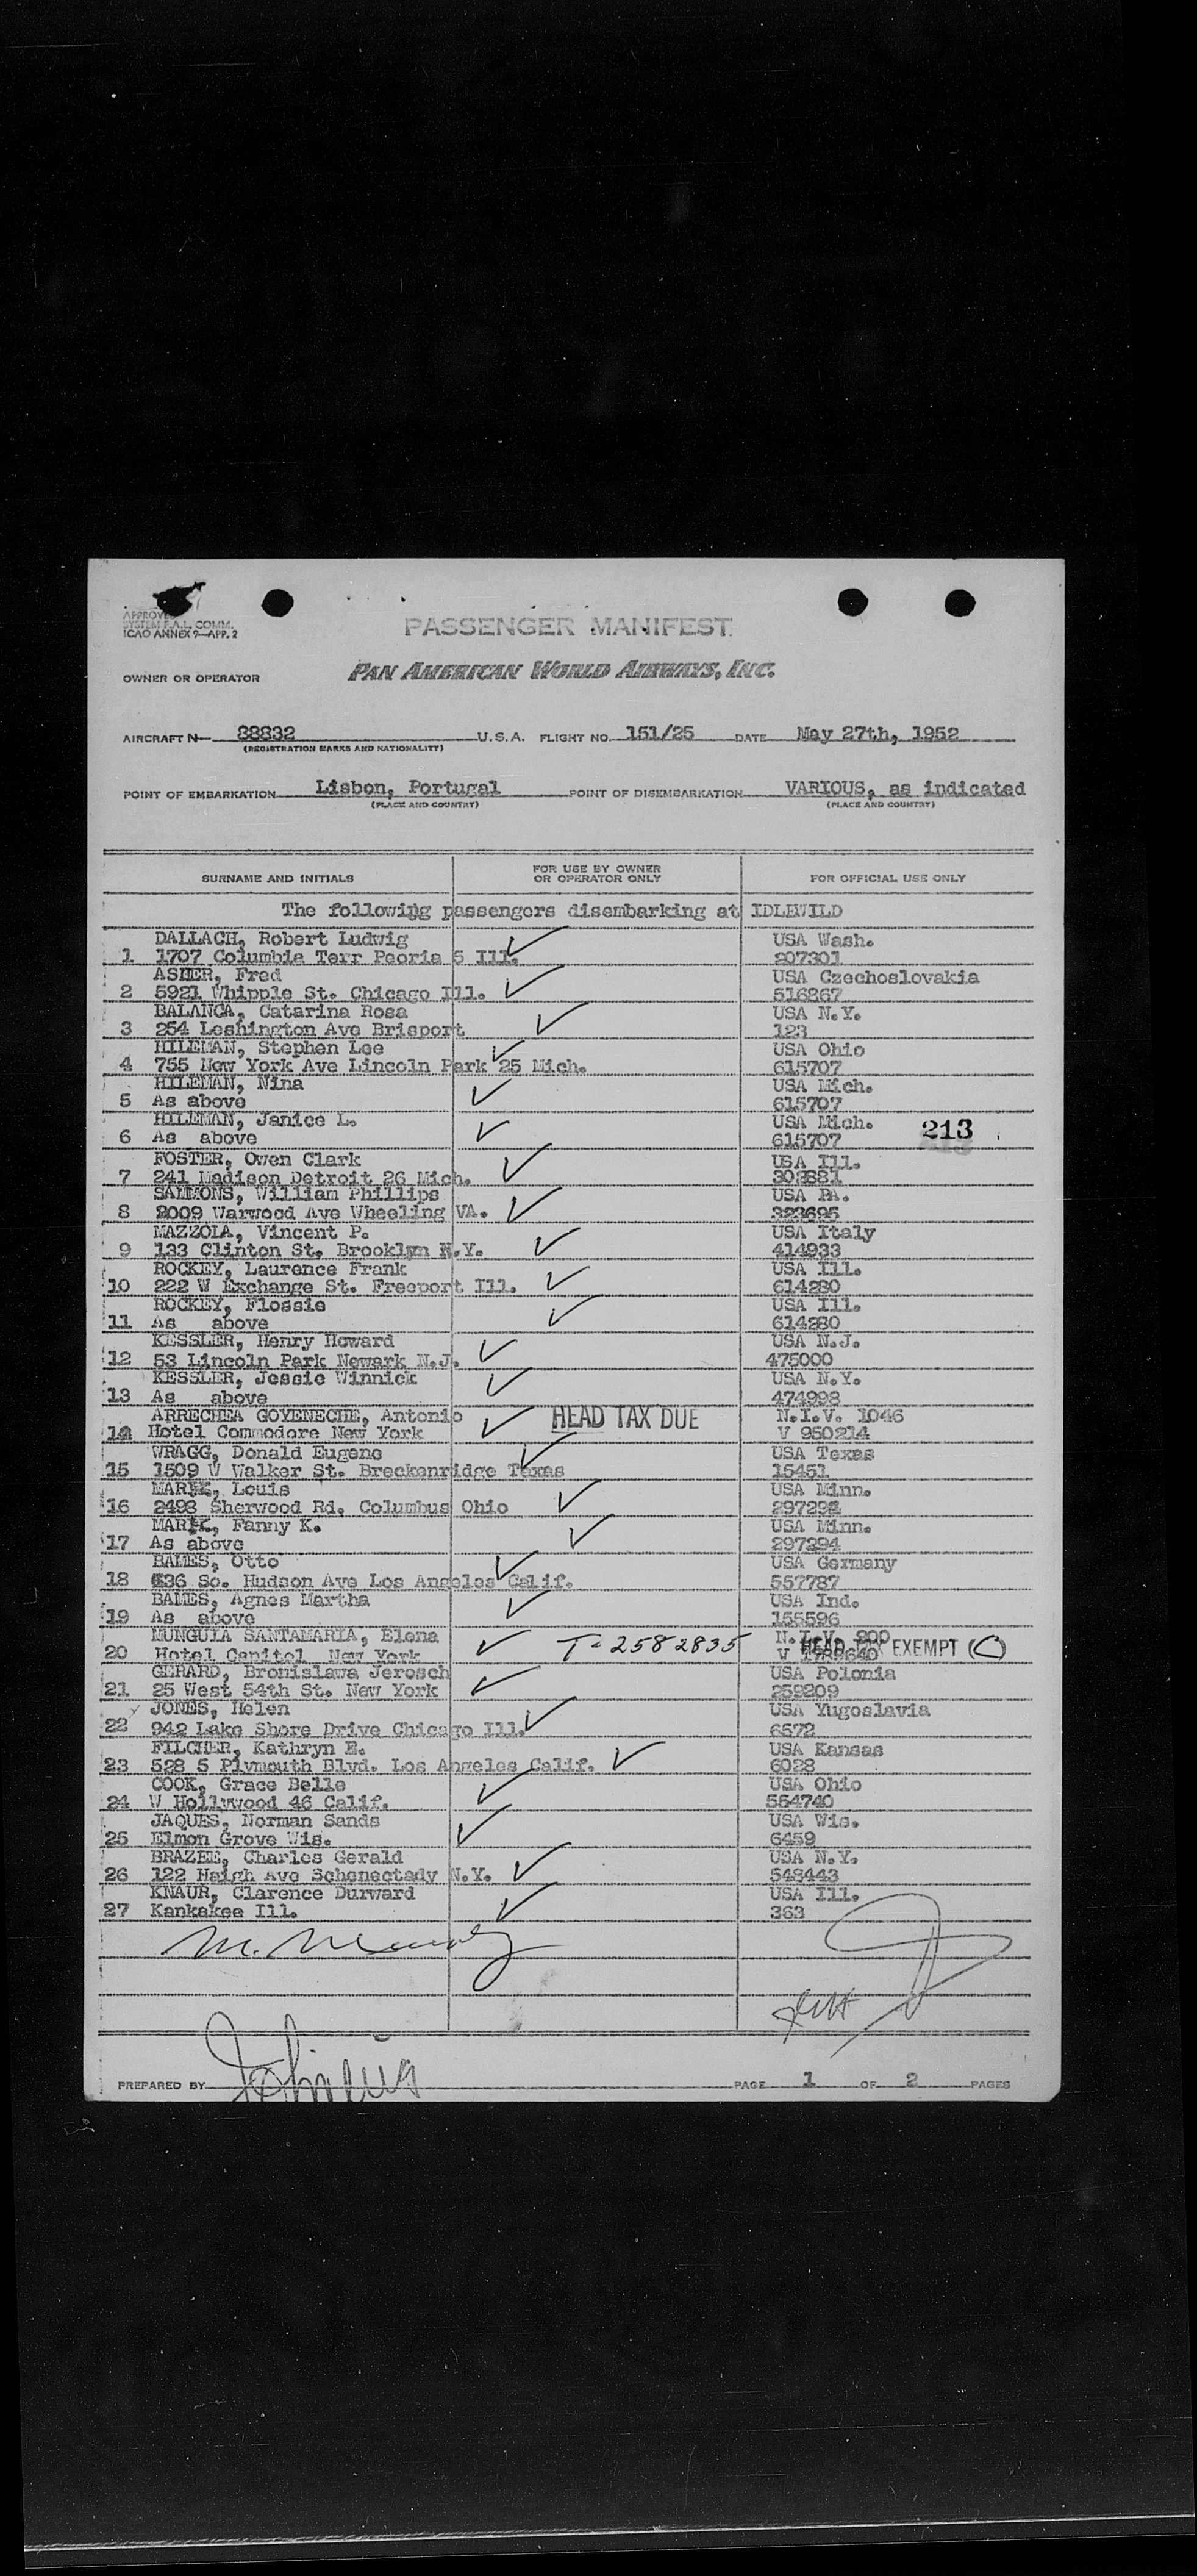 APPROVED
SYSTEM F.A.L. COMM.
ICAO ANNEX 9—APP. 2
PASSENGER MANIFEST
OWNER OR OPERATOR PAN AMERICAN WORLD AIRWAYS, INC.
AIRCRAFT N— 88832 U.S.A. FLIGHT NO. 151/25 DATE May 27th, 1952
(REGISTRATION MARKS AND NATIONALITY)
POINT OF EMBARKATION Lisbon, Portugal POINT OF DISEMBARKATION VARIOUS, as indicated
(PLACE AND COUNTRY) (PLACE AND COUNTRY)
SURNAME AND INITIALS FOR USE BY OWNER OR OPERATOR ONLY FOR OFFICIAL USE ONLY
The following passengers disembarking at IDLEWILD
DALLACH, Robert Ludwig USA Wash.
1 1707 Columbia Terr Peoria 5 Ill. 207301
ASHER, Fred USA Czechoslovakia
2 5921 Whipple St. Chicago Ill. 516267
BALANCA, Catarina Rosa USA N.Y.
3 254 Leshington Ave Brisport 123
HILEMAN, Stephen Lee USA Ohio
4 755 New York Ave Lincoln Park 25 Mich. 615707
HILEMAN, Nina USA Mich.
5 As above 615707
HILEMAN, Janice L. USA Mich.
6 As above 615707 213
FOSTER, Owen Clark USA Ill.
7 241 Madison Detroit 26 Mich.
SAMMONS, William Phillips USA PA.
8 2009 Warwood Ave Wheeling VA. 323695
MAZZOLA, Vincent P. USA Italy
9 133 Clinton St. Brooklyn N.Y. 414933
ROCKEY, Laurence Frank USA Ill.
10 222 W Exchange St. Freeport Ill. 614280
ROCKEY, Flossie USA Ill.
11 As above 614280
KESSLER, Henry Howard USA N.J.
12 53 Lincoln Park Newark N.J. 475000
KESSLER, Jessie Winnick USA N.Y.
13 As above 474998
ARRECHEA GOYENECHE, Antonio HEAD TAX DUE N.I.V. 1046
14 Hotel Commodore New York V 950214
WRAGG, Donald Eugene USA Texas
15 1509 W Walker St. Breckenridge Texas 15451
Louis USA Minn.
16 2493 Sherwood Rd. Columbus Ohio
Fanny K. USA Minn.
17 As above 297294
BAMES, Otto USA Germany
18 636 So. Hudson Ave Los Angeles Calif. 557787
BAMES, Agnes Martha USA Ind.
19 As above 155596
MUNGUIA SANTAMARIA, Elena T-2582835 N.I.V. 900
20 Hotel Capitol New York HEAD TAX EXEMPT (C)
GERARD, Bronislawa Jerosch USA Polonia
21 25 West 54th St. New York 259209
JONES, Helen USA Yugoslavia
22 942 Lake Shore Drive Chicago Ill. 6572
FILCHER, Kathryn E. USA Kansas
23 528 S Plymouth Blvd. Los Angeles Calif. 6028
COOK, Grace Belle USA Ohio
24 W Hollywood 46 Calif. 554740
JAQUES, Norman Sands USA Wis.
25 Elmon Grove Wis. 6459
BRAZEE, Charles Gerald USA N.Y.
26 122 Haigh Ave Schenectady N.Y. 548443
KNAUR, Clarence Durward USA Ill.
27 Kankakee Ill. 363
PREPARED BY PAGE 1 OF 2 PAGES